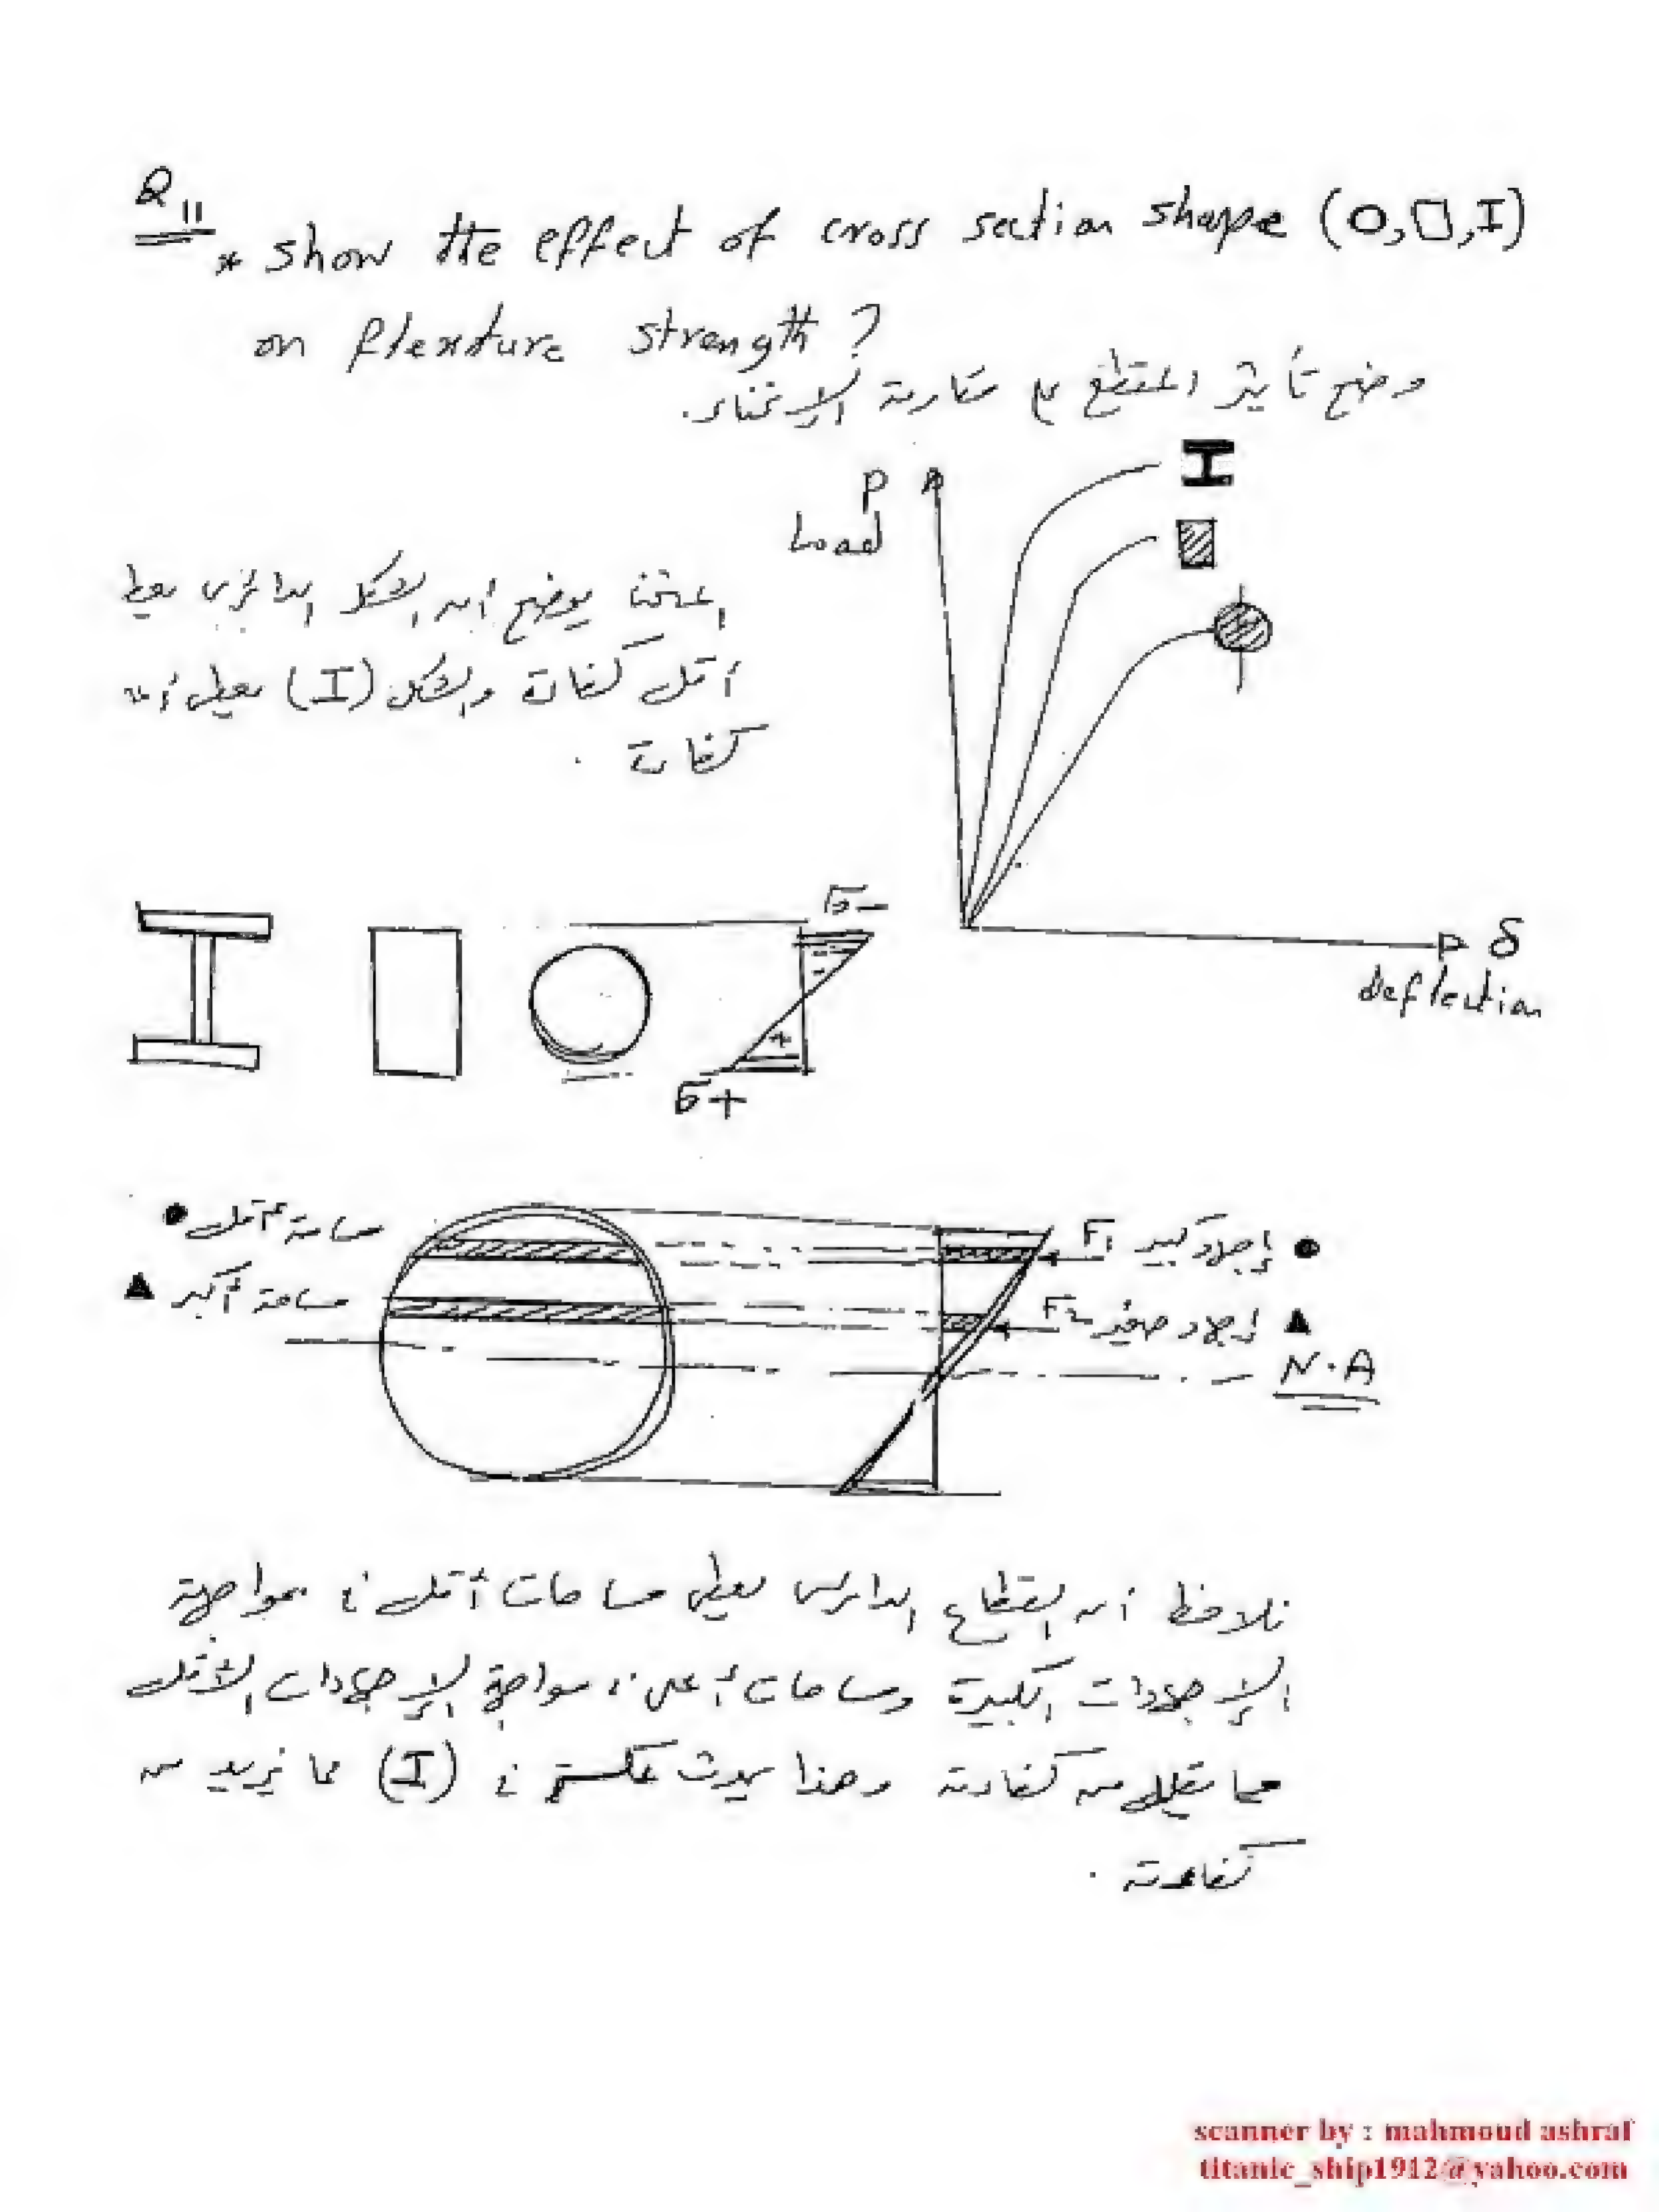 Q11
* show the effect of cross section shape (O,▯,I)
on flexture strength?
وضح تأثير المقطع على مقاومة الإنحناء.
P
Load
المنحنى يوضح أن الشكل الدائرى يعطى
أقل كفاءة والشكل (I) يعطى أعلى
كفاءة .
δ
deflection
σ-
-
+
σ+
● مساحة أقل
F1 إجهاد كبير ●
▲ مساحة أكبر
F2 إجهاد صغير ▲
N.A
نلاحظ أن القطاع الدائرى يعطى مساحات أقل فى مواجهة
الإجهادات الكبيرة ومساحات أعلى فى مواجهة الإجهادات الأقل
مما يقلل من كفاءته وهذا يحدث عكسه فى (I) مما يزيد من
كفاءته .
scanner by : mahmoud ashraf
titanic_ship1912@yahoo.com